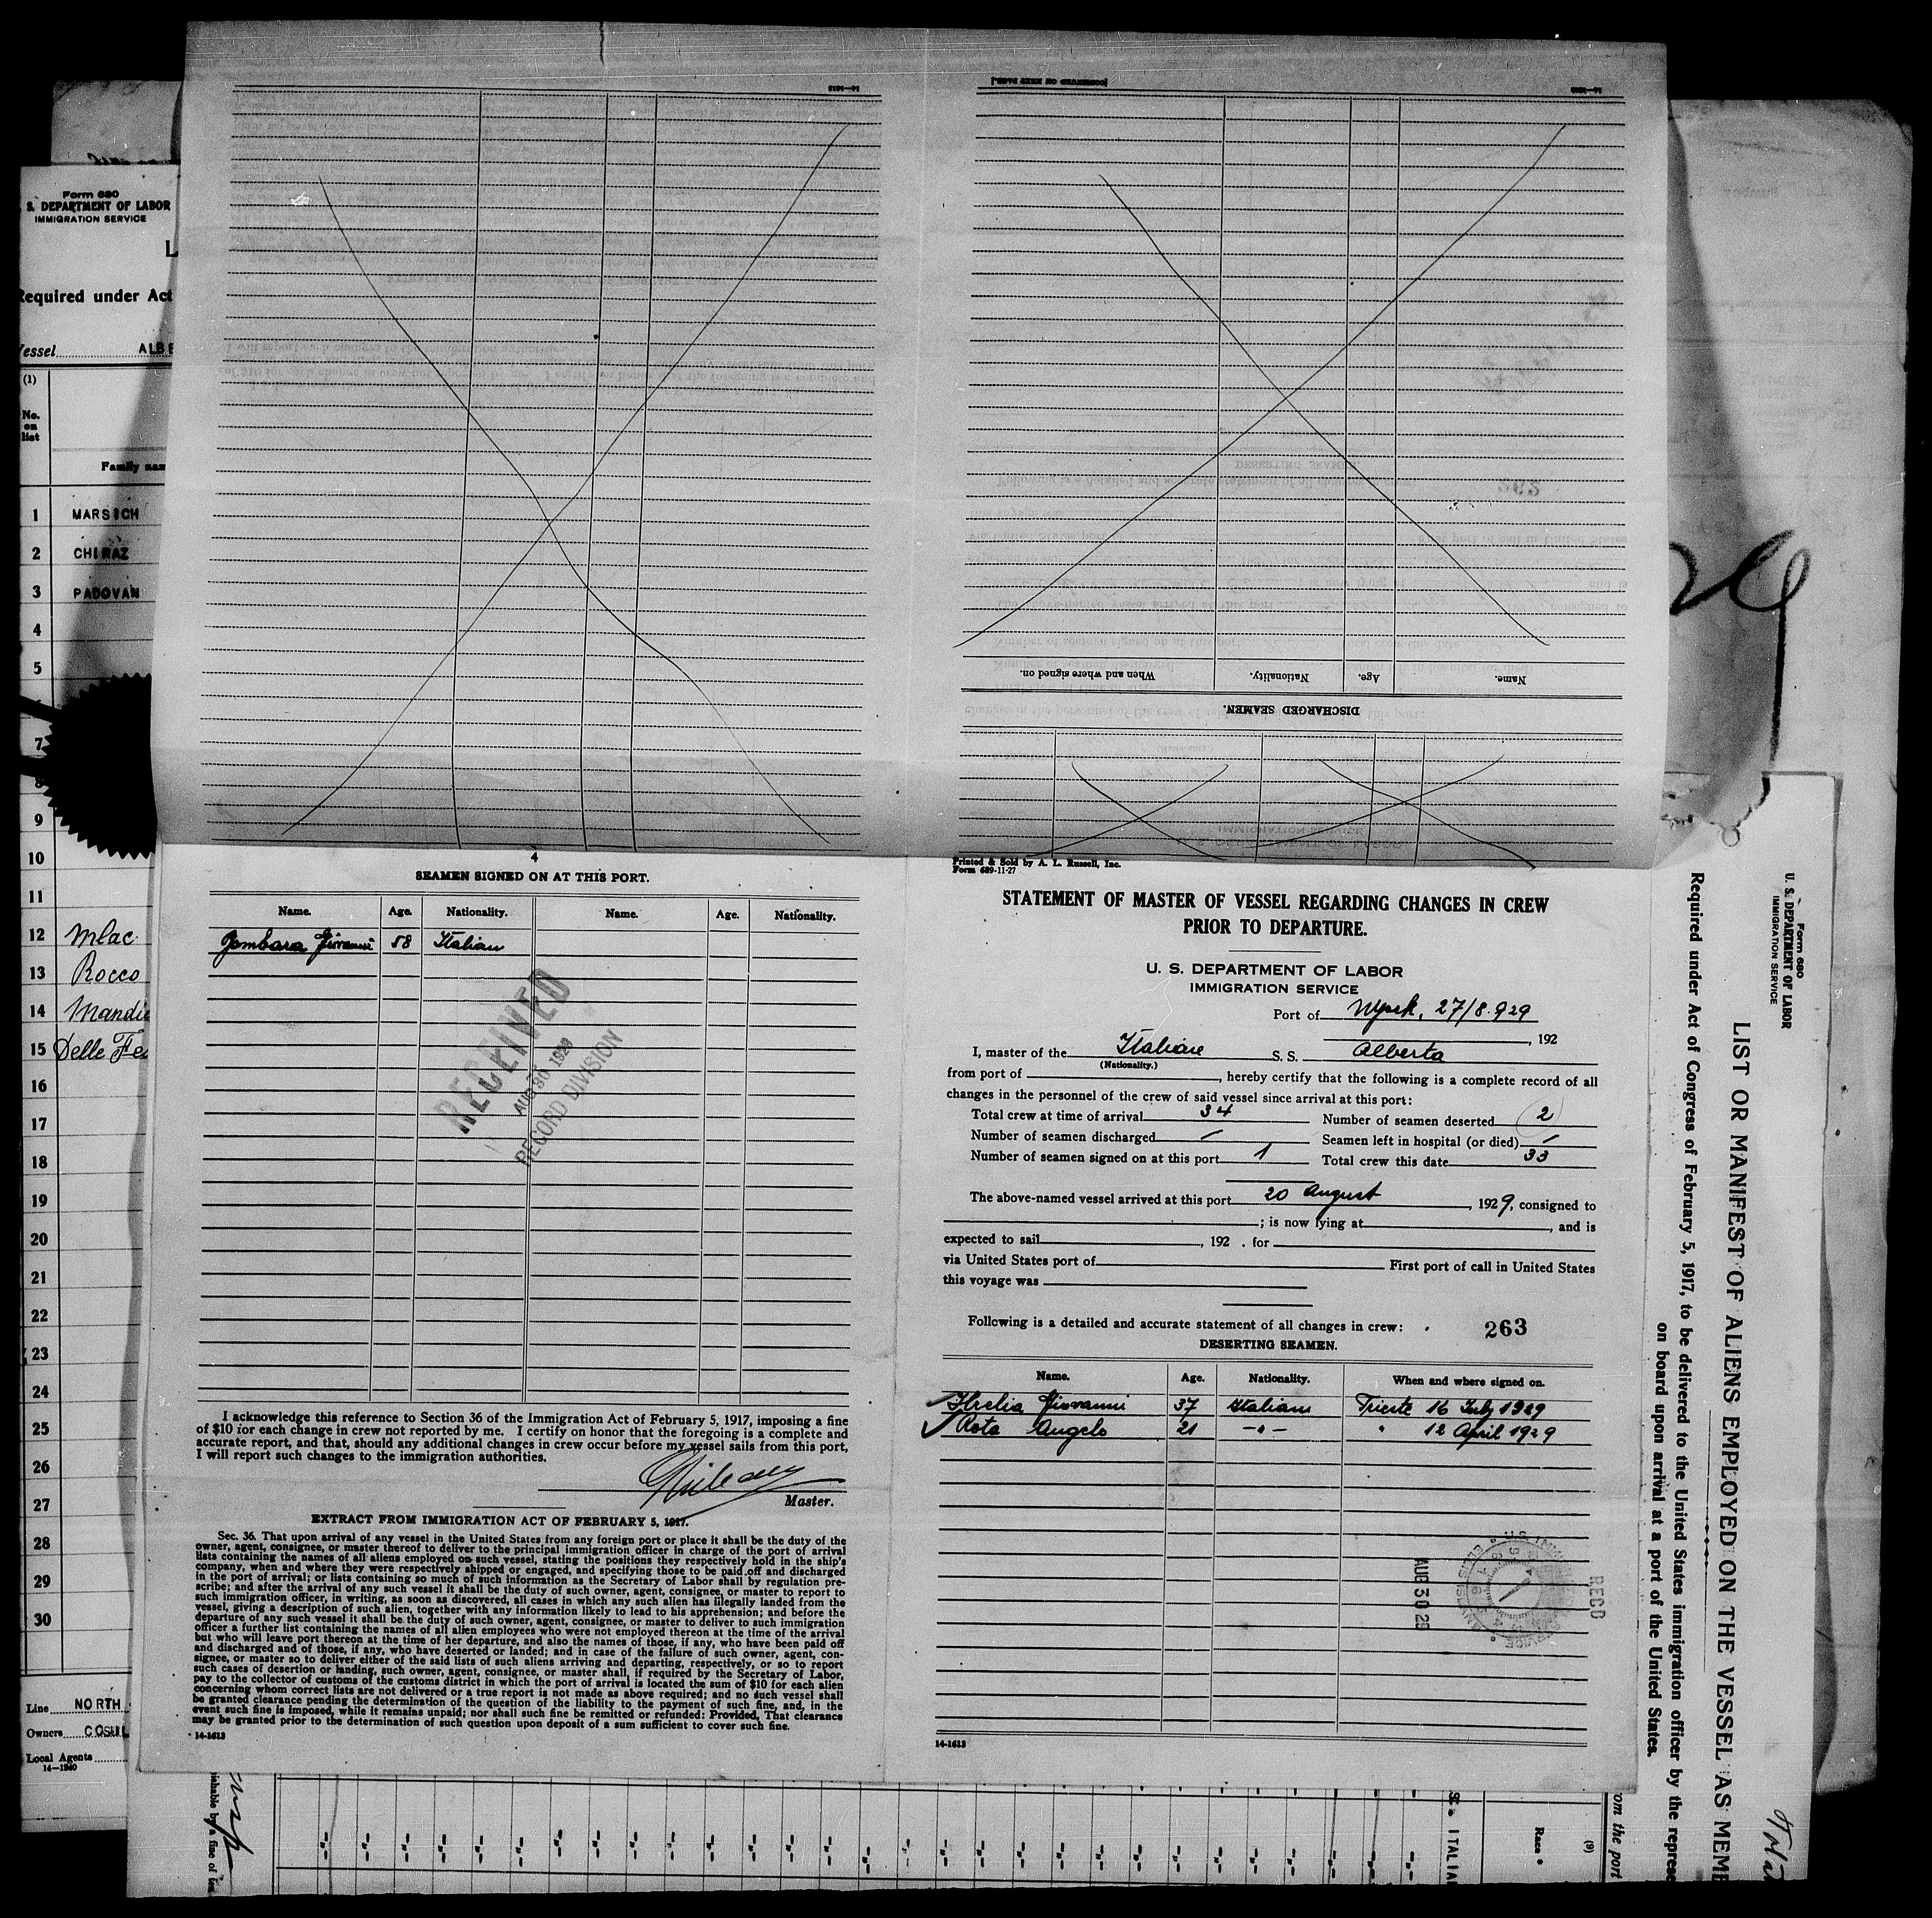 Form 680
S. DEPARTMENT OF LABOR
IMMIGRATION SERVICE
L
Required under Act
Vessel ALBE
(1)
No. on list
Family nam
1 MARSICH
2 CHIRAZ
3 PADOVAN
4
5
7
8
9
10
11
12 Mlac
13 Rocco
14 Mandic
15 Delle Fe
16
17
18
19
20
21
22
23
24
25
26
27
28
29
30
Line NORTH
Owners COSUL
Local Agents
14—1240
[CONTINUED ON NEXT PAGE.]
When and where signed on. Nationality. Age. Name.
DISCHARGED SEAMEN.
4
SEAMEN SIGNED ON AT THIS PORT.
Name. Age. Nationality. Name. Age. Nationality.
Giovanni 58 Italian
RECEIVED
AUG 30 1929
RECORD DIVISION
I acknowledge this reference to Section 36 of the Immigration Act of February 5, 1917, imposing a fine
of $10 for each change in crew not reported by me. I certify on honor that the foregoing is a complete and
accurate report, and that, should any additional changes in crew occur before my vessel sails from this port,
I will report such changes to the immigration authorities.
Master.
EXTRACT FROM IMMIGRATION ACT OF FEBRUARY 5, 1917.
Sec. 36. That upon arrival of any vessel in the United States from any foreign port or place it shall be the duty of the
owner, agent, consignee, or master thereof to deliver to the principal immigration officer in charge of the port of arrival
lists containing the names of all aliens employed on such vessel, stating the positions they respectively hold in the ship's
company, when and where they were respectively shipped or engaged, and specifying those to be paid off and discharged
in the port of arrival; or lists containing so much of such information as the Secretary of Labor shall by regulation pre-
scribe; and after the arrival of any such vessel it shall be the duty of such owner, agent, consignee, or master to report to
such immigration officer, in writing, as soon as discovered, all cases in which any such alien has illegally landed from the
vessel, giving a description of such alien, together with any information likely to lead to his apprehension; and before the
departure of any such vessel it shall be the duty of such owner, agent, consignee, or master to deliver to such immigration
officer a further list containing the names of all alien employees who were not employed thereon at the time of the arrival
but who will leave port thereon at the time of her departure, and also the names of those, if any, who have been paid off
and discharged and of those, if any, who have deserted or landed; and in case of the failure of such owner, agent, con-
signee, or master so to deliver either of the said lists of such aliens arriving and departing, respectively, or so to report
such cases of desertion or landing, such owner, agent, consignee, or master shall, if required by the Secretary of Labor,
pay to the collector of customs of the customs district in which the port of arrival is located the sum of $10 for each alien
concerning whom correct lists are not delivered or a true report is not made as above required; and no such vessel shall
be granted clearance pending the determination of the question of the liability to the payment of such fine, and, in the
event such fine is imposed, while it remains unpaid; nor shall such fine be remitted or refunded: Provided, That clearance
may be granted prior to the determination of such question upon deposit of a sum sufficient to cover such fine.
14-1613
Printed & Sold by A. L. Russell, Inc.
Form 689-11-27
STATEMENT OF MASTER OF VESSEL REGARDING CHANGES IN CREW
PRIOR TO DEPARTURE.
U. S. DEPARTMENT OF LABOR
IMMIGRATION SERVICE
Port of NYork, 27/8.929
, 192
I, master of the Italian S. S. Alberta
(Nationality.)
from port of , hereby certify that the following is a complete record of all
changes in the personnel of the crew of said vessel since arrival at this port:
Total crew at time of arrival 34 Number of seamen deserted 2
Number of seamen discharged / Seamen left in hospital (or died) /
Number of seamen signed on at this port 1 Total crew this date 33
The above-named vessel arrived at this port 20 August , 1929, consigned to
; is now lying at , and is
expected to sail , 192 . for
via United States port of First port of call in United States
this voyage was
Following is a detailed and accurate statement of all changes in crew: 263
DESERTING SEAMEN.
Name. Age. Nationality. When and where signed on.
Giovanni 37 Italian Trieste 16 July 1929
Rota Angelo 21 -"- " 12 April 1929
AUG 30 29
RECD
14-1613
Form 680
U. S. DEPARTMENT OF LABOR
IMMIGRATION SERVICE
LIST OR MANIFEST OF ALIENS EMPLOYED ON THE VESSEL AS MEMB
Required under Act of Congress of February 5, 1917, to be delivered to the United States immigration officer by the represe
on board upon arrival at a port of the United States.
om the port
(9)
Race *
ITALIA
ishable by a fine of